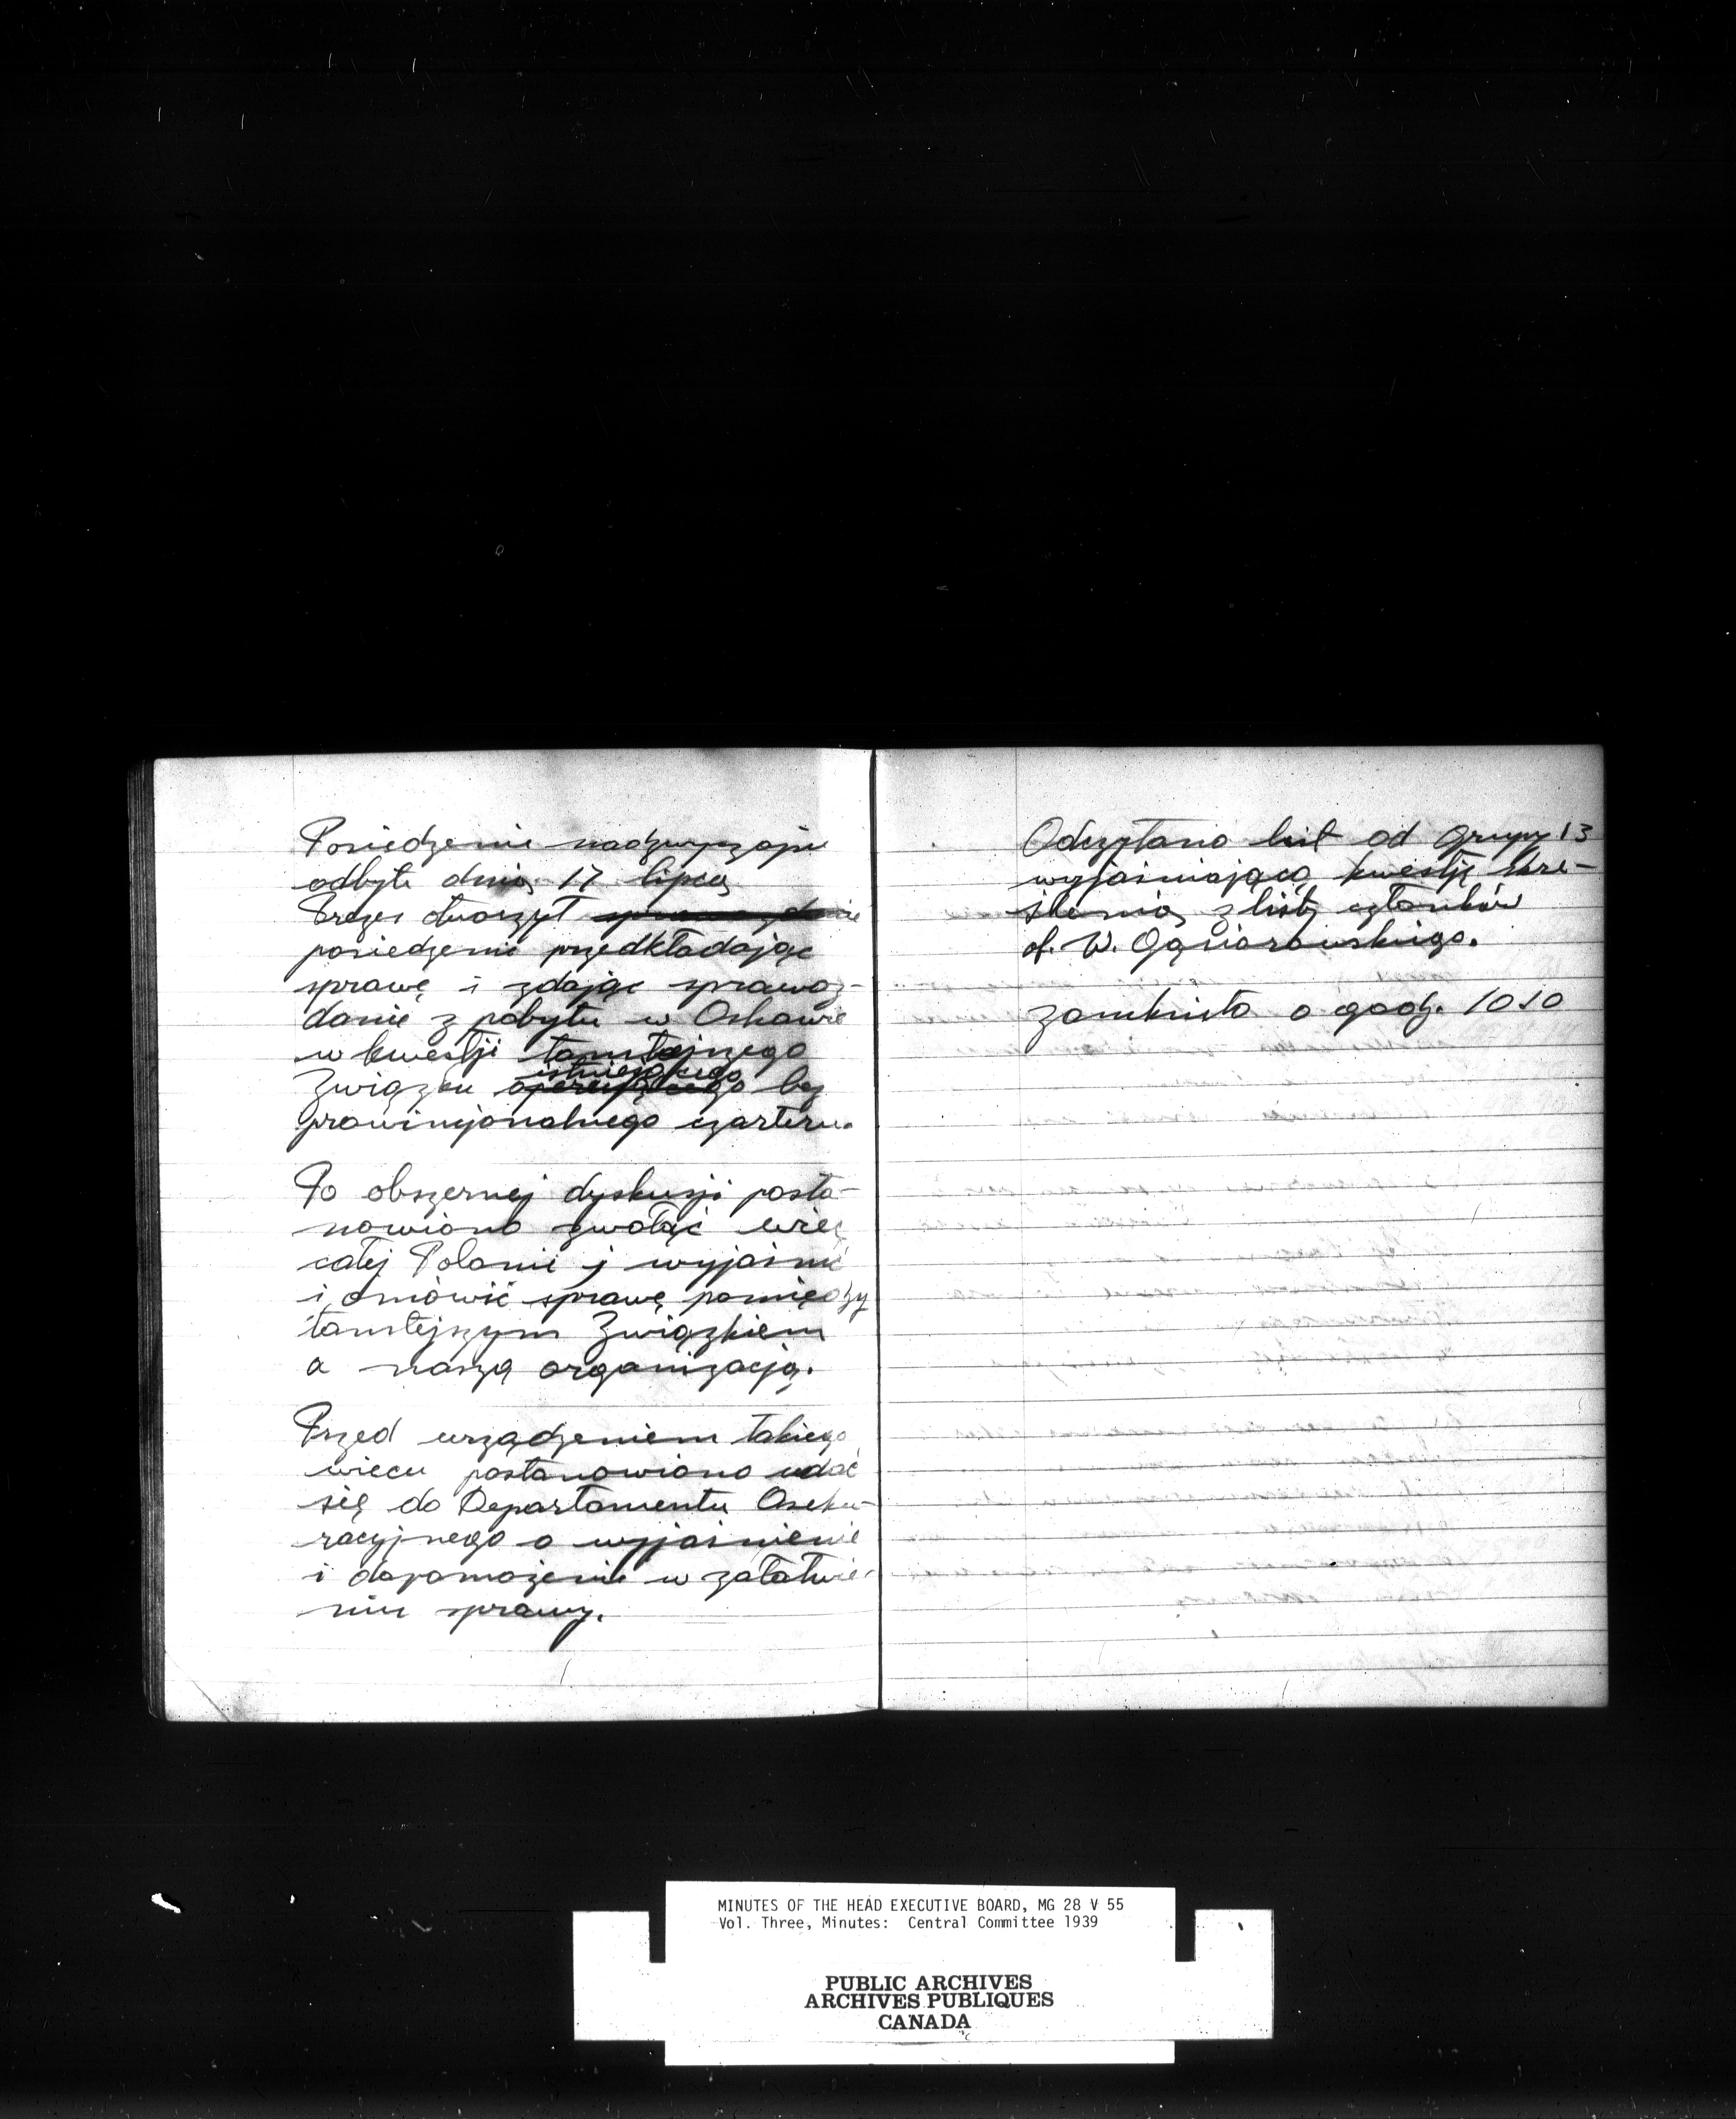 Posiedzenie nadzwyczajne
odbyte dnia 17 lipca
Prezes otworzył sprawozdanie
posiedzenie przedkładając
sprawę i zdając sprawoz-
danie z pobytu w Oshawie
w kwestji tamtejszego
istniejącego
Związku operującego bez
prowincjonalnego czarteru.
Po obszernej dyskusji posta-
nowiono zwołać wiec
całej Polonii i wyjaśnić
i omówić sprawę pomiędzy
tamtejszym Związkiem
a naszą organizacją.
Przed urządzeniem takiego
wiecu postanowiono udać
się do Departamentu Aseku-
racyjnego o wyjaśnienie
i dopomożenie w załatwie-
niu sprawy.
Odczytano list od Grupy 13
wyjaśniającą kwestję skre-
ślenia z listy członków
W.
Zamknięto o godz. 10 10
MINUTES OF THE HEAD EXECUTIVE BOARD, MG 28 V 55
Vol. Three, Minutes: Central Committee 1939
PUBLIC ARCHIVES
ARCHIVES PUBLIQUES
CANADA